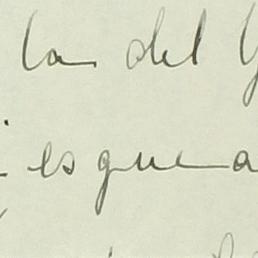 la del
esquena